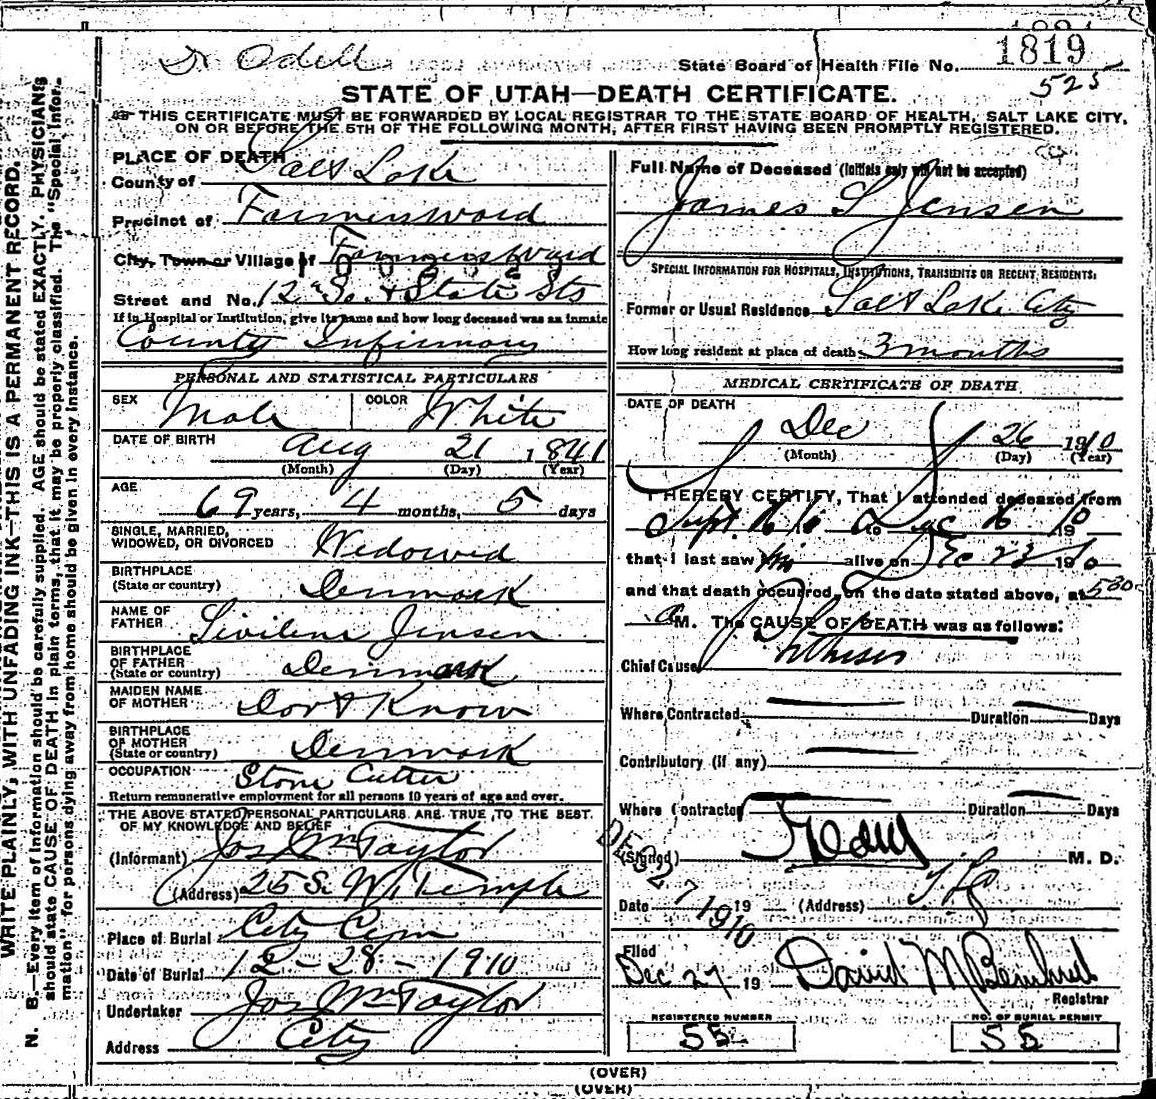 1819
Dr Odell
State Board of Health File No.
525
STATE OF UTAH—DEATH CERTIFICATE.
THIS CERTIFICATE MUST BE FORWARDED BY LOCAL REGISTRAR TO THE STATE BOARD OF HEALTH, SALT LAKE CITY,
ON OR BEFORE THE 5TH OF THE FOLLOWING MONTH, AFTER FIRST HAVING BEEN PROMPTLY REGISTERED.
WRITE PLAINLY, WITH UNFADING INK—THIS IS A PERMANENT RECORD.
N. B.—Every item of information should be carefully supplied. AGE should be stated EXACTLY. PHYSICIANS
should state CAUSE OF DEATH in plain terms, that it may be properly classified. The "Special Infor-
mation" for persons dying away from home should be given in every instance.
PLACE OF DEATH
County of Salt Lake
Precinct of Farmersward
City, Town or Village of Farmersward
Street and No. 12 So. & State Sts
If in Hospital or Institution, give its name and how long deceased was an inmate
County Infirmary
PERSONAL AND STATISTICAL PARTICULARS
SEX Male COLOR White
DATE OF BIRTH Aug 21 1841
(Month) (Day) (Year)
AGE 69 years, 4 months, 5 days
SINGLE, MARRIED,
WIDOWED, OR DIVORCED Widowed
BIRTHPLACE
(State or country) Denmark
NAME OF
FATHER Jensen
BIRTHPLACE
OF FATHER
(State or country) Denmark
MAIDEN NAME
OF MOTHER Dont Know
BIRTHPLACE
OF MOTHER
(State or country) Denmark
OCCUPATION Stone Cutter
Return remunerative employment for all persons 10 years of age and over.
THE ABOVE STATED PERSONAL PARTICULARS ARE TRUE TO THE BEST
OF MY KNOWLEDGE AND BELIEF
(Informant) Jos Wm Taylor
(Address) 25 S. W. Temple
Place of Burial City Cem
Date of Burial 12-28-1910
Undertaker Jos Wm Taylor
Address City
Full Name of Deceased (Initials only will not be accepted)
James S Jensen
SPECIAL INFORMATION FOR HOSPITALS, INSTITUTIONS, TRANSIENTS OR RECENT RESIDENTS:
Former or Usual Residence Salt Lake City
How long resident at place of death 3 months
MEDICAL CERTIFICATE OF DEATH
DATE OF DEATH
Dec 26 1910
(Month) (Day) (Year)
I HEREBY CERTIFY, That I attended deceased from
Sept. 16 to Dec 26 1910
that I last saw him alive on Dec 23 1910
and that death occurred, on the date stated above, at 530
a M. The CAUSE OF DEATH was as follows:
Chief Cause Phthisis
Where Contracted Duration Days
Contributory (if any)
Where Contracted Duration Days
(Signed) Odell M. D.
DEC 27 1910
Date 19 (Address)
Filed
Dec 27 19 David
Registrar
REGISTERED NUMBER
55
NO. OF BURIAL PERMIT
55
(OVER)
(OVER)